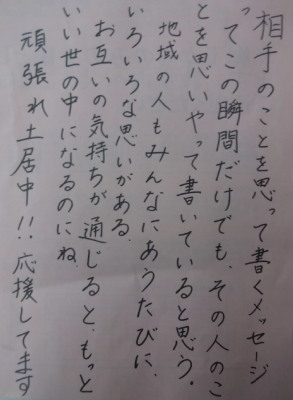 相手のことを思って書くメッセージ
ってこの瞬間だけでも、その人のこ
とを思いやって書いていると思う。
地域の人もみんなにあうたびに、
いろいろな思いがある。
お互いの気持ちが通じると、もっと
いい世の中になるのにね。
頑張れ土居中!!応援してます